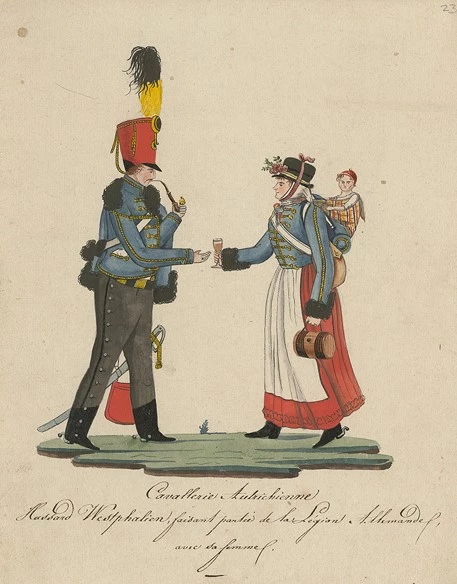 23
Cavallerie Autrichienne
Hussard Westphalien, faisant partie de la Légion Allemande,
avec sa femme.